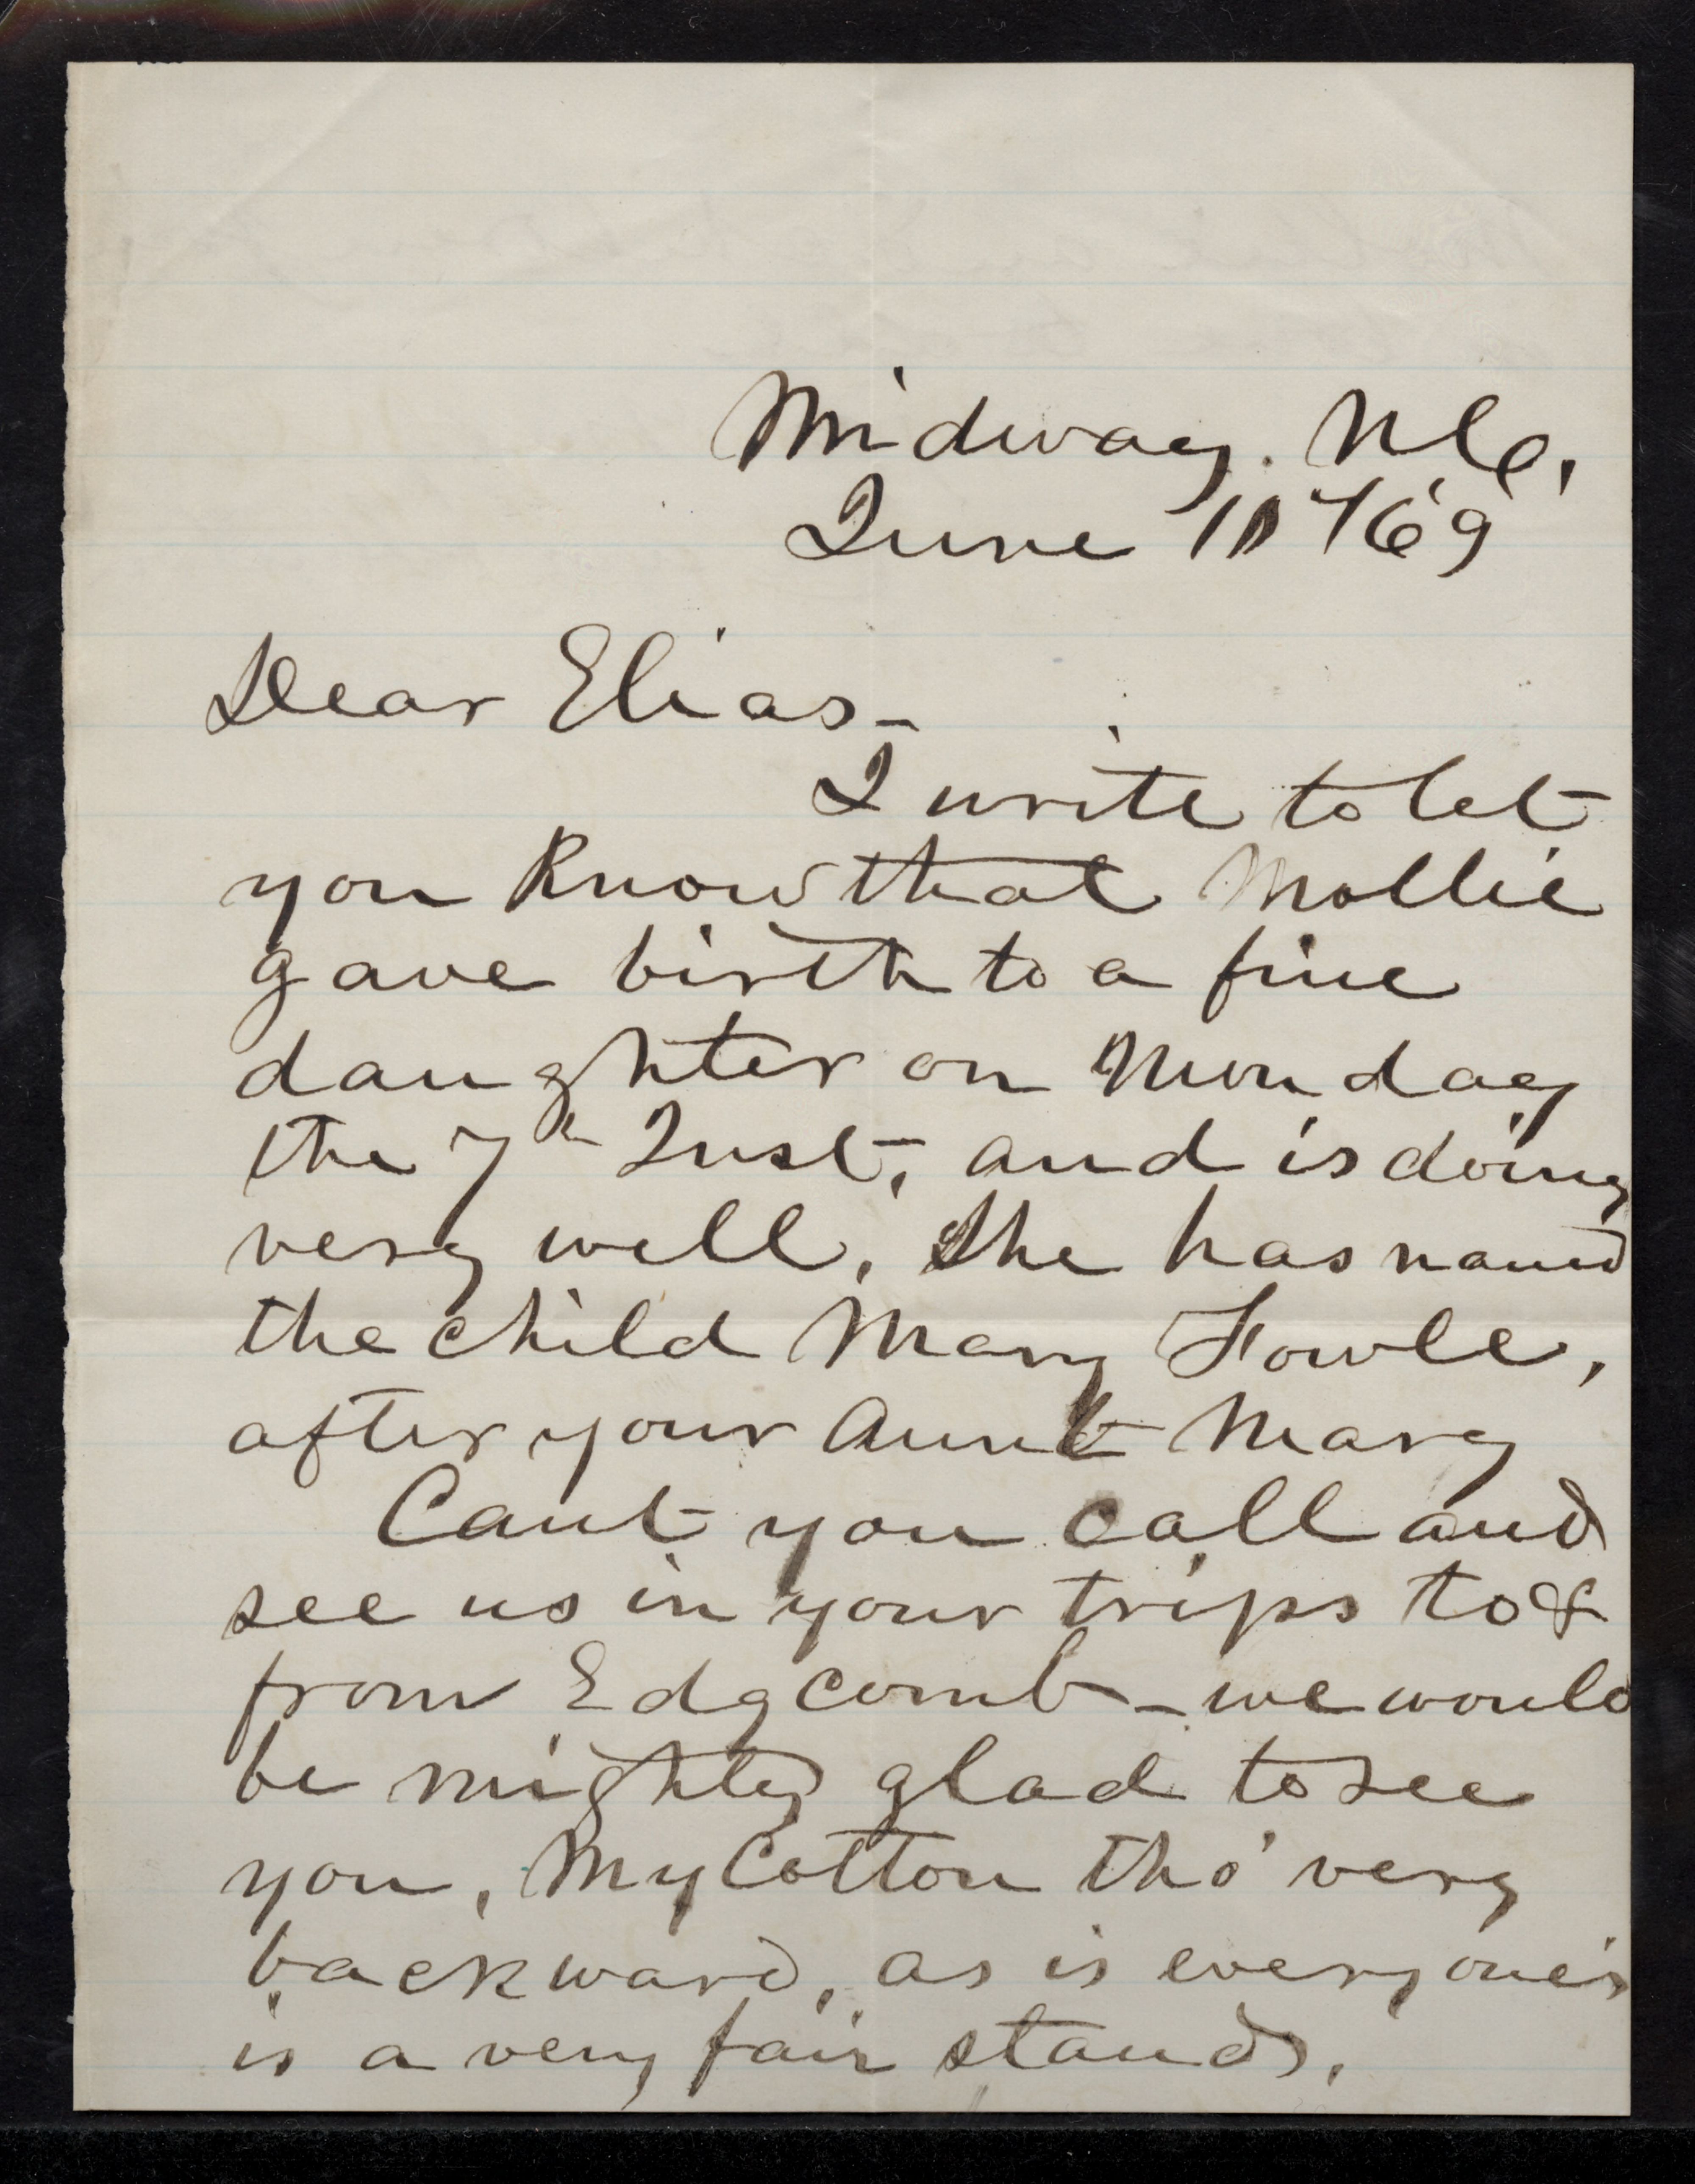 Midway. N.C.,
June 10 /69
Dear Elias-
I write to let
you Know that Mollie
gave birth to a fine
daughter on Monday
the 7th Inst, and is doing
very well, She has named
the child Mary Fowle,
after your Aunt Mary
Cant you call and
see us in your trips to &
from Edgcomb - we would
be mighty glad to see
you, My Cotton tho' very
backward, as is every one's
is a very fair stand,